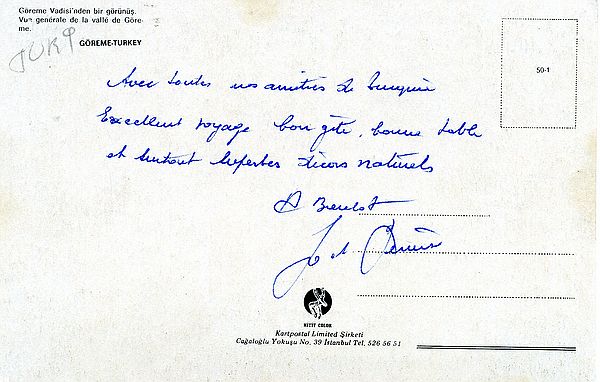 Göreme Vadisi'nden bir görünüş.
Vue generale de la vallé de Göre-
me.
GÖREME-TURKEY
TURQ
50-1
Avec toutes nos amitiés de Turquie
Excellent voyage bon gîte, bonne table
et surtout superbes décors naturels
A Bientot
Jo et Denise
HITIT COLOR
Kartpostal Limited Şirketi
Cağaloğlu Yokuşu No. 39 İstanbul Tel. 526 56 51